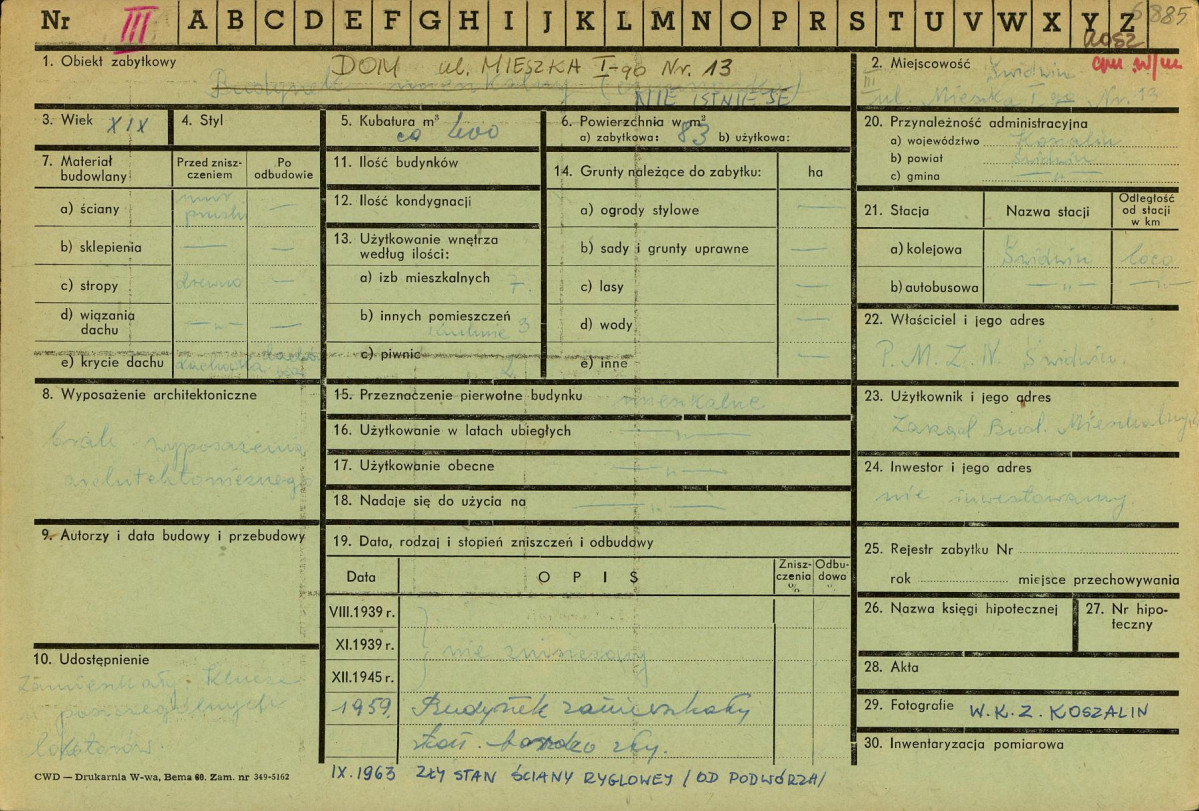 Nr III A B C D E F G H I J K L M N O P R S T U V W X Y Z 6885
KOSZ
1. Obiekt zabytkowy DOM ul. MIESZKA I-go Nr. 13
Budynek mieszkalny
NIE ISTNIEJE
2. Miejscowość Świdwin
III
ul. Mieszka I go Nr. 13
3. Wiek XIX
4. Styl
5. Kubatura m³ ca 600
6. Powierzchnia w m²
a) zabytkowa: 83 b) użytkowa:
7. Materiał budowlany
Przed zniszczeniem
Po odbudowie
a) ściany mur pruski —
b) sklepienia — —
c) stropy drewno —
d) wiązania dachu —„— —
e) krycie dachu dachówka
8. Wyposażenie architektoniczne
brak wyposażenia
architektonicznego
9. Autorzy i data budowy i przebudowy
10. Udostępnienie
Zamieszkały. Klucze
u poszczególnych
lokatorów.
11. Ilość budynków
12. Ilość kondygnacji
13. Użytkowanie wnętrza
według ilości:
a) izb mieszkalnych 7.
b) innych pomieszczeń
kuchnie 3
c) piwnic 2
14. Grunty należące do zabytku: ha
a) ogrody stylowe —
b) sady i grunty uprawne —
c) lasy —
d) wody —
e) inne
15. Przeznaczenie pierwotne budynku mieszkalne
16. Użytkowanie w latach ubiegłych —„—
17. Użytkowanie obecne —„—
18. Nadaje się do użycia na —„—
19. Data, rodzaj i stopień zniszczeń i odbudowy
Data OPIS Zniszczenia % Odbudowa %
VIII.1939 r.
XI.1939 r. nie zniszczony
XII.1945 r.
1959. Budynek zamieszkały
stan bardzo zły.
IX.1963 ZŁY STAN ŚCIANY RYGLOWEJ / OD PODWÓRZA/
20. Przynależność administracyjna
a) województwo Koszalin
b) powiat Świdwin
c) gmina —„—
21. Stacja Nazwa stacji Odległość od stacji w km
a) kolejowa Świdwin loco
b) autobusowa —„— —„—
22. Właściciel i jego adres
P. M. R. N. Świdwin.
23. Użytkownik i jego adres
Zarząd Bud. Mieszkalnych
24. Inwestor i jego adres
nie inwestowany
25. Rejestr zabytku Nr
rok miejsce przechowywania
26. Nazwa księgi hipotecznej
27. Nr hipoteczny
28. Akta
29. Fotografie W.K.Z. KOSZALIN
30. Inwentaryzacja pomiarowa
CWD — Drukarnia W-wa, Bema 60. Zam. nr 349-5162